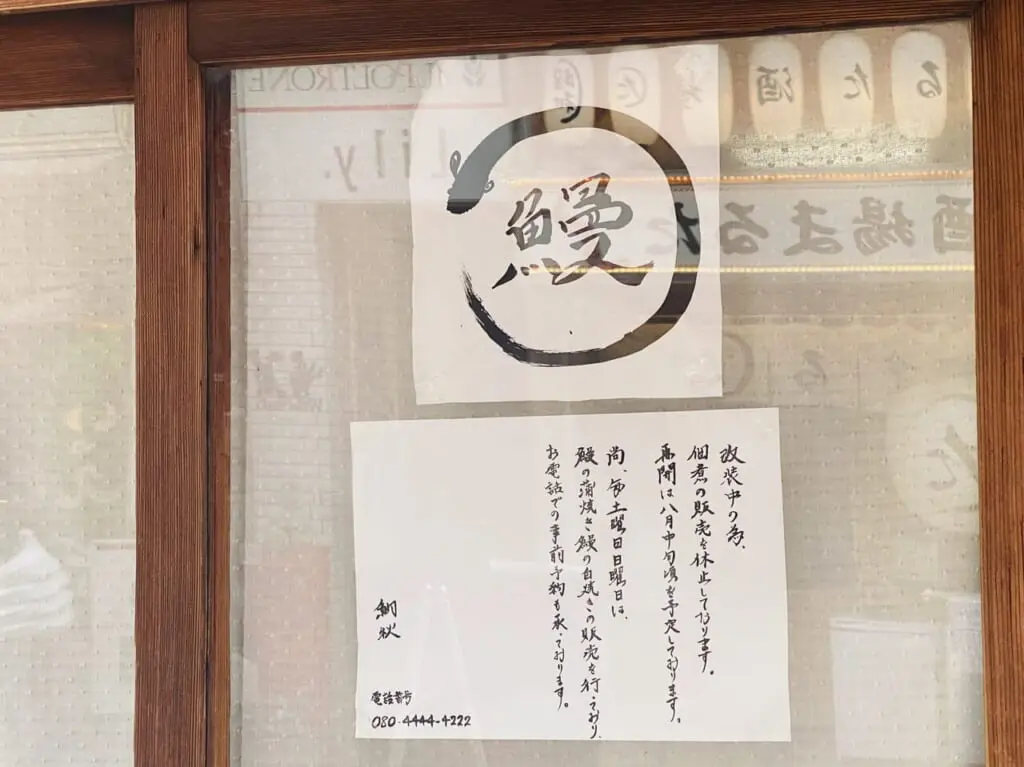 鰻
改装中の為、
佃煮の販売を休止しております。
再開は八月中旬頃を予定しております。
尚、毎土曜日日曜日は、
鰻の蒲焼き鰻の白焼きの販売を行っており、
お電話での事前予約も承っております。
電話番号
080-4444-4222
IL POLTRONE
Lily.
酒場まるた